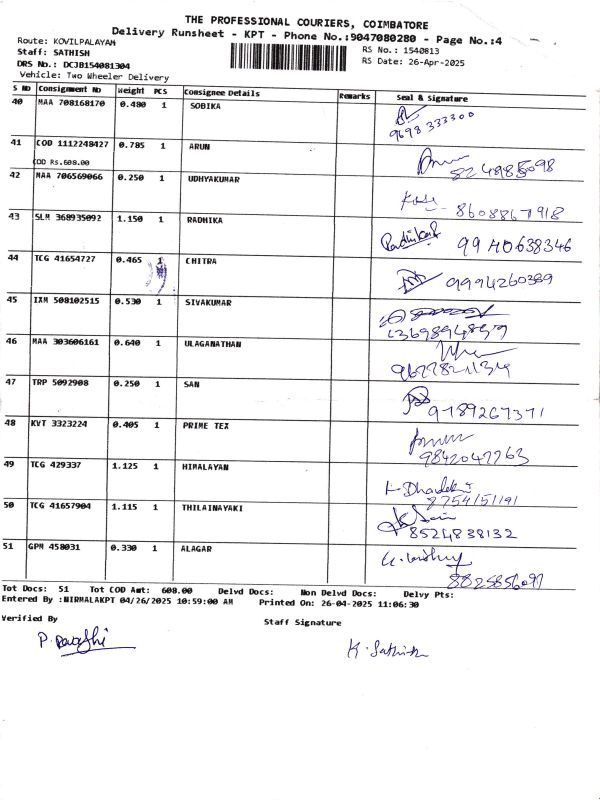 THE PROFESSIONAL COURIERS, COIMBATORE
Delivery Runsheet - KPT - Phone No.:9047080280 - Page No.:4
Route: KOVILPALAYAM
Staff: SATHISH
DRS No.: DCJB154081304
Vehicle: Two Wheeler Delivery
RS No.: 1540813
RS Date: 26-Apr-2025
S No Consignment No Weight PCS Consignee Details Remarks Seal & Signature
40 MAA 708168170 0.480 1 SOBIKA
9698333300
41 COD 1112248427 0.785 1 ARUN
COD Rs.608.00
8224985098
42 MAA 706569066 0.250 1 UDHYAKUMAR
8608867918
43 SLM 368935092 1.150 1 RADHIKA
Radhika 9940638346
44 TCG 41654727 0.465 1 CHITRA
9994260389
45 IXM 508102515 0.530 1 SIVAKUMAR
46 MAA 303606161 0.640 1 ULAGANATHAN
47 TRP 5092908 0.250 1 SAN
9789267371
48 KVT 3323224 0.405 1 PRIME TEX
9842047763
49 TCG 429337 1.125 1 HIMALAYAN
8754151191
50 TCG 41657904 1.115 1 THILAINAYAKI
8524838132
51 GPM 458031 0.330 1 ALAGAR
8825856097
Tot Docs: 51 Tot COD Amt: 608.00 Delvd Docs: Non Delvd Docs: Delvy Pts:
Entered By :NIRMALAKPT 04/26/2025 10:59:00 AM Printed On: 26-04-2025 11:06:30
Verified By
Staff Signature
K. Sathish